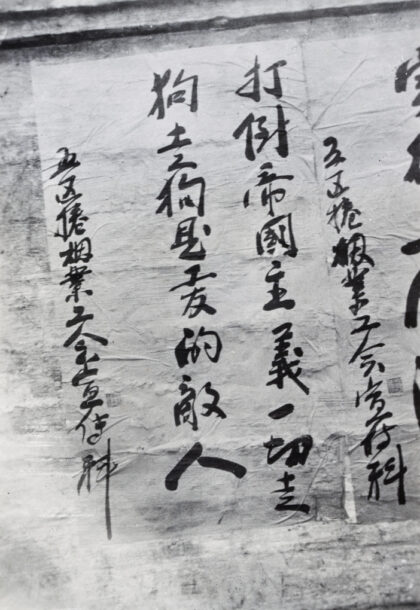 五区捲烟業工会宣傳科
打倒帝國主義一切走
狗土狗是工友的敵人
五区捲烟業工会宣傳科